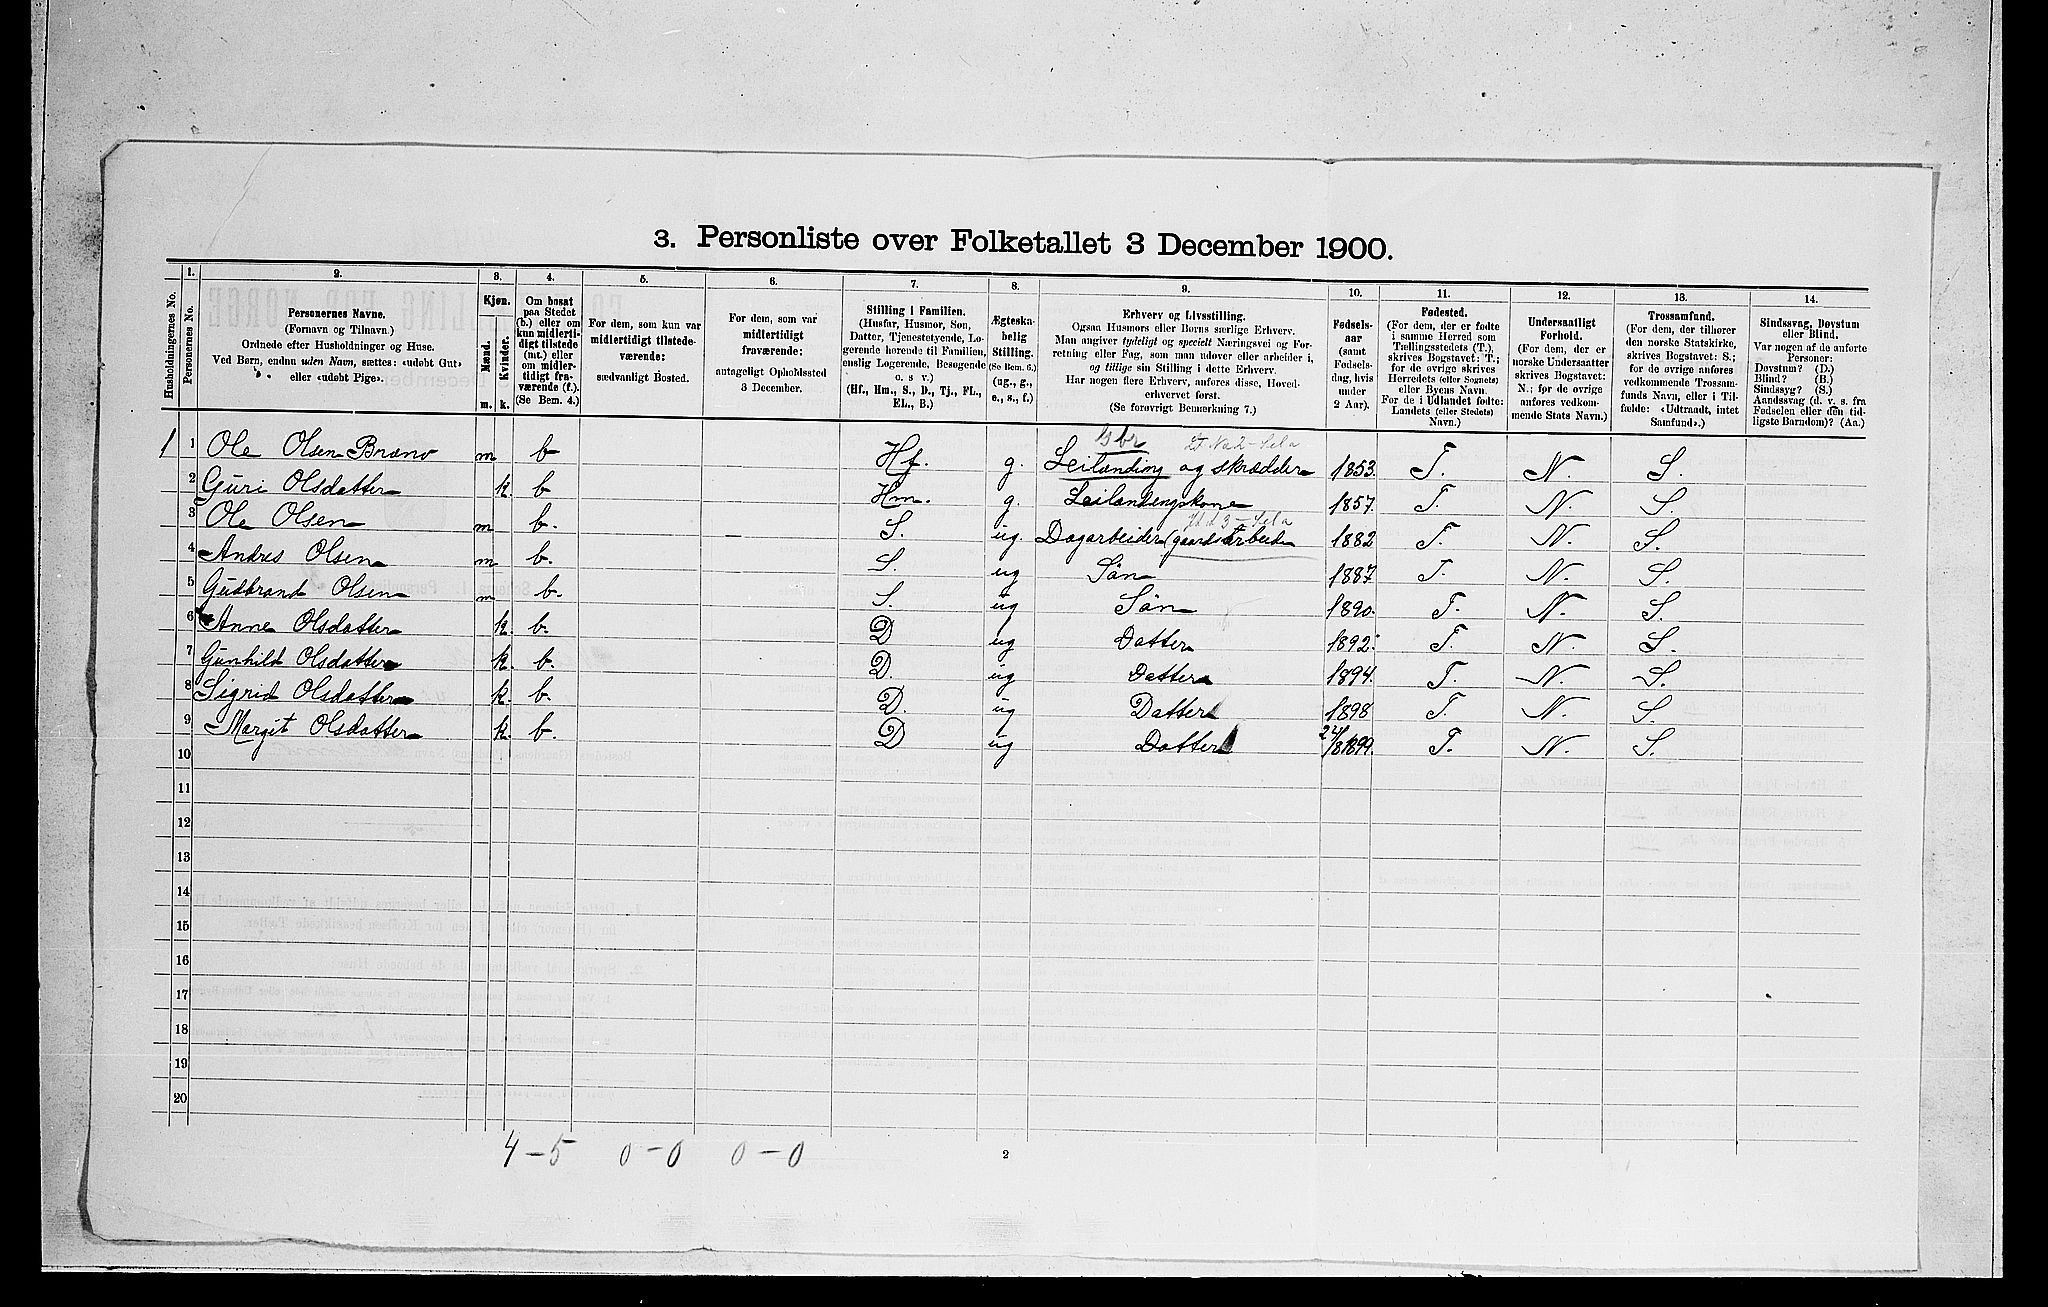 3. Personliste over Folketallet 3 December 1900.
1. 2. 3. 4. 5. 6. 7. 8. 9. 10. 11. 12. 13. 14.
Husholdningernes No.
Personernes No.
Personernes Navne.
(Fornavn og Tilnavn.)
Ordnede efter Husholdninger og Huse.
Ved Børn, endnu uden Navn, sættes: «udøbt Gut»
eller «udøbt Pige».
Kjøn.
Mænd.
Kvinder.
m. k.
Om bosat
paa Stedet
(b.) eller om
kun midlerti-
digt tilstede
(mt.) eller
om midler-
tidigt fra-
værende (f.).
(Se Bem. 4.)
For dem, som kun var
midlertidigt tilstede-
værende:
sædvanligt Bosted.
For dem, som var
midlertidigt
fraværende:
antageligt Opholdssted
3 December.
Stilling i Familien.
(Husfar, Husmor, Søn,
Datter, Tjenestetyende, Lo-
gerende hørende til Familien,
enslig Logerende, Besøgende
o. s v.)
(Hf., Hm., S., D., Tj., FL.,
EL., B.)
Ægteska-
belig
Stilling.
(Se Bem. 6.)
(ug., g.,
e., s., f.)
Erhverv og Livsstilling.
Ogsaa Husmors eller Børns særlige Erhverv.
Man angiver tydeligt og specielt Næringsvei og For-
retning eller Fag, som man udøver eller arbeider i,
og tillige sin Stilling i dette Erhverv.
Har nogen flere Erhverv, anføres disse, Hoved-
erhvervet først.
(Se forøvrigt Bemerkning 7.)
Fødsels-
aar
(samt
Fødsels-
dag, hvis
under
2 Aar).
Fødested.
(For dem, der er fødte
i samme Herred som
Tællingsstedets (T.),
skrives Bogstavet: T.;
for de øvrige skrives
Herredets (eller Sognets)
eller Byens Navn.
For de i Udlandet fødte:
Landets (eller Stedets)
Navn.)
Undersaatligt
Forhold.
(For dem, der er
norske Undersaatter
skrives Bogstavet:
N.; for de øvrige
anføres vedkom-
mende Stats Navn.)
Trossamfund.
(For dem, der tilhører
den norske Statskirke,
skrives Bogstavet: S.;
for de øvrige anføres
vedkommende Trossam-
funds Navn, eller i Til-
fælde: «Udtraadt, intet
Samfund».)
Sindssvag, Døvstum
eller Blind.
Var nogen af de anførte
Personer:
Døvstum? (D.)
Blind? (B.)
Sindssyg? (S.)
Aandssvag (d. v. s. fra
Fødselen eller den tid-
ligste Barndom)? (Aa.)
1 1 Ole Olsen Bræno m b Hf. g. Leilænding og skrædder 1853. T. N. S.
2 Guri Olsdatter k. b Hm. g. Leilændingskone 1857. T. N. S.
3 Ole Olsen m b. S. ug. Dagarbeider (gaardsarbeide 1882 T. N. S.
4 Andres Olsen m b. S. ug Søn 1887. T. N. S.
5 Gudbrand Olsen m b. S. ug Søn 1890. T. N. S.
6 Anne Olsdatter k. b. D ug Datter 1892. T. N. S.
7 Gunhild Olsdatter k. b. D. ug Datter 1894. T. N. S.
8 Sigrid Olsdatter k. b. D. ug Datter 1898 T. N. S.
9 Margit Olsdatter k. b. D ug Datter 24/8 1899. T. N. S.
10
11
12
13
14
15
16
17
18
19
20
4 - 5 0 - 0 0 - 0
2